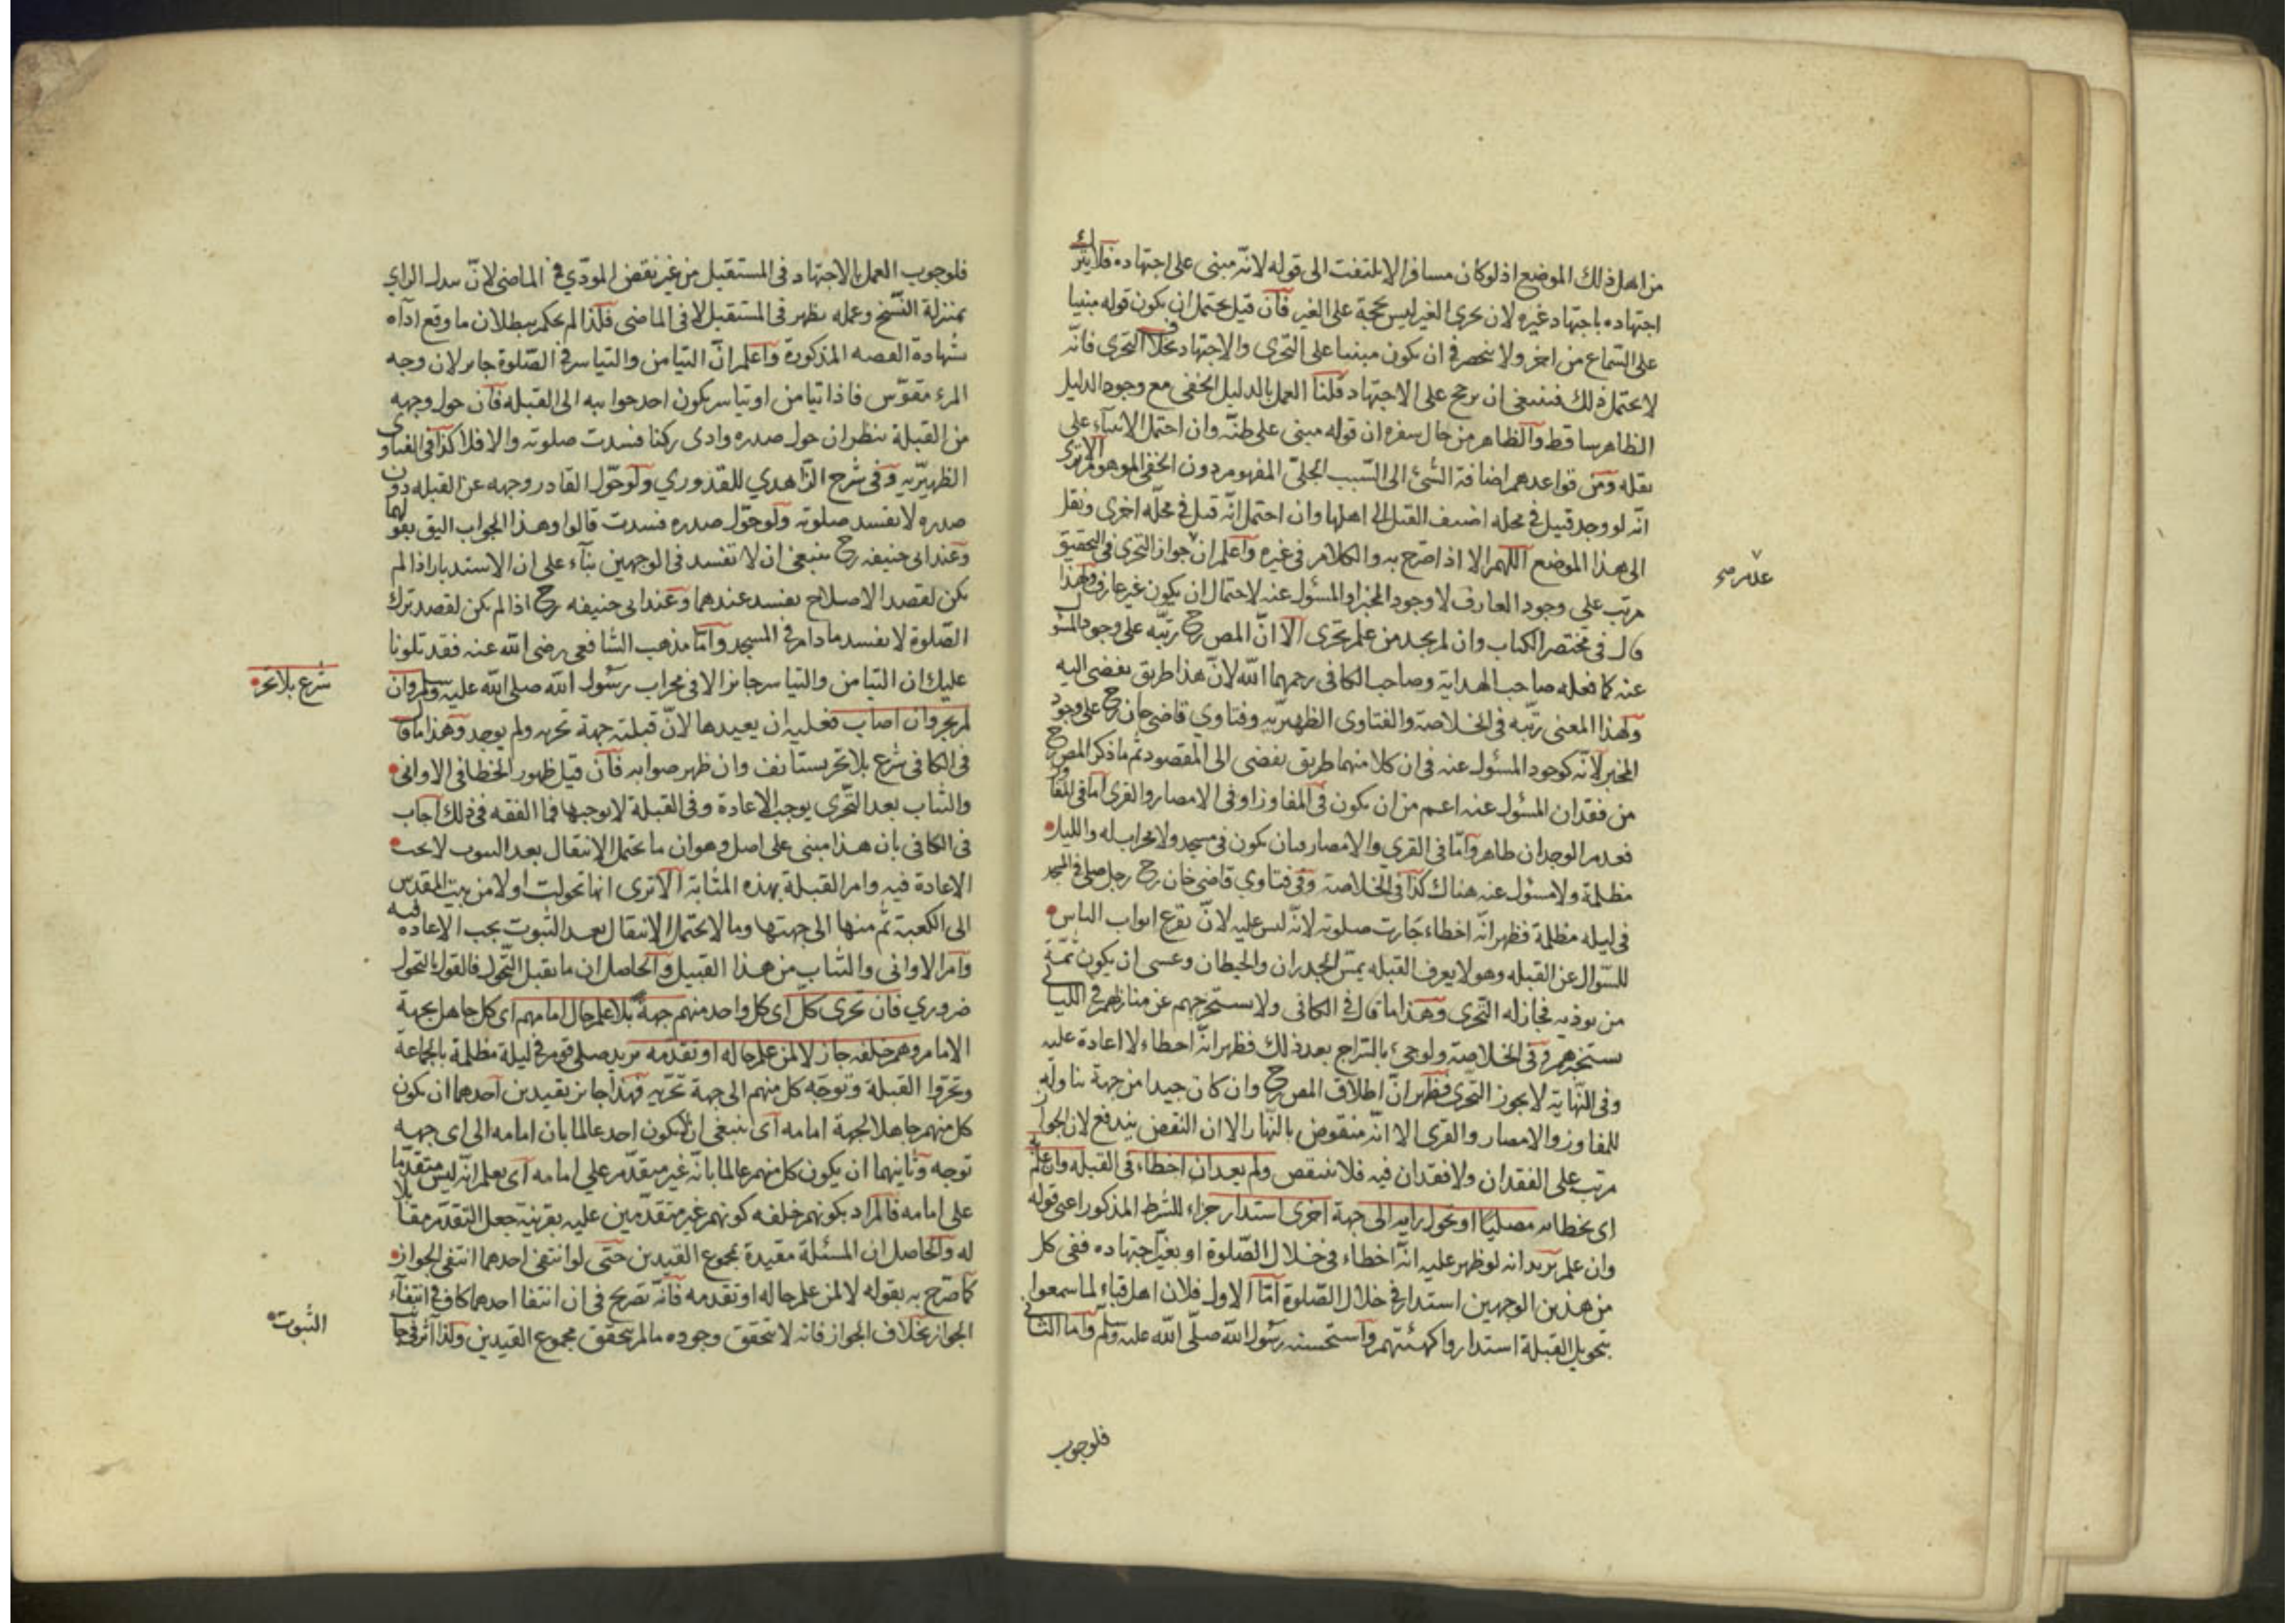 من اهل ذلك الموضع اذ لو كان مسافرا لا يلتفت الى قوله لانّه مبنى على اجتهاده فلا يترك
اجتهاده باجتهاد غيره لان تحرى الغير ليس بحجة على الغير فان قيل يحتمل ان يكون قوله مبنيا
على السّماع من اخر ولا ينحصر فى ان يكون مبنيا على التحرى والاجتهاد بخلاف التحرى فانّه
لا يحتمل ذلك فينبغى ان يرجح على الاجتهاد قلنا العمل بالدليل الخفى مع وجود الدليل
الظاهر ساقط والظاهر من حال سفره ان قوله مبنى على ظنّه وان احتمل الابتناء على
نقله ومن قواعدهم اضافة الشئ الى السّبب الجلىّ المفهوم دون الخفى الموهوم الا ترى
انّه لو وجد قتيل فى محله اضيف القتل الى اهلها وان احتمل انّه قتل فى محلّه اخرى ونقل
الى هذا الموضع اللهم الا اذا صرّح به والكلام فى غيره واعلم ان جواز التحرى فى التحقيق
مرتب على وجود العارف لا وجود المخبر او المسئول عنه لاحتمال ان يكون غير عارف ولهذا
قال فى مختصر الكتاب وان لم يجد من علم تحرى الا انّ المص رح رتّبه على وجود المسئول
عنه كما فعله صاحب الهداية وصاحب الكافى رحمهما الله لانّ هذا طريق يفضى اليه
ولهذا المعنى رتّبه فى الخلاصة والفتاوى الظهيريّه وفتاوي قاضى خان رح على وجود
المخبر لانّه كوجود المسئول عنه فى ان كلا منهما طريق يفضى الى المقصود ثم ما ذكر المص رح
من فقدان المسئول عنه اعم من ان يكون فى المفاوز او فى الامصار والقرى اما فى المفاوز
فعدم الوجدان ظاهر وامّا فى القرى والامصار فبان يكون فى مسجد ولا محراب له والليل
مظلمة ولا مسئول عنه هناك كذا فى الخلاصة وفى فتاوي قاضى خان رح رجل صلى فى المسجد
فى ليله مظلمة فظهر انّه اخطاء جازت صلوته لانّه ليس عليه لانّ يقرع ابواب الناس
للسّوال عن القبله وهو لا يعرف القبله بمسّ الجدران والحيطان وعسى ان يكون ثمّة
من يوذيه فجاز له التحرى وهذا ما قال فى الكافى ولا يستخرجهم عن منازلهم فى الليالى
يستخبرهم وفى الخلاصة ولو جئ بالسّراج بعد ذلك فظهر انّه اخطاء لا اعادة عليه
وفى النّهاية لا يجوز التحرى فظهر انّ اطلاق المص رح وان كان جيدا من جهة تناوله
للمفاوز والامصار والقرى الا انّه منقوض بالنّهار الا ان النقض يندفع لان الجواز
مرتب على الفقدان ولا فقدان فيه فلا ينتقض ولم يعد ان اخطاء فى القبله وان علم
اى بخطائه مصليّا او تحول رايه الى جهة اخرى استدار جزاء للشرط المذكور اعنى قوله
وان علم يريد انه لو ظهر عليه انّه اخطاء فى خلال الصّلوة او تغيّر اجتهاده ففى كل
من هذين الوجهين استدار فى خلال الصّلوة امّا الاول فلان اهل قباء لما سمعوا
بتحويل القبلة استداروا كهيئتهم واستحسنه رسول الله صلّى الله عليه وسلّم واما الثانى
عدم صح
فلوجوب
فلوجوب العمل بالاجتهاد فى المستقبل من غير نقض المودّي فى الماضى لانّ تبدل الراي
بمنزلة النّسخ وعمله يظهر فى المستقبل لا فى الماضى فلذا لم يحكم ببطلان ما وقع اداه
بشهادة القصه المذكورة واعلم انّ التيامن والتياسر فى الصّلوة جايز لان وجه
المرء مقوّس فاذا تيامن او تياسر يكون احد جوانبه الى القبله فان حول وجهه
من القبلة ينظر ان حول صدره وادى ركنا فسدت صلوته والا فلا كذا فى الفتاوى
الظهيريّه وفى شرح الزّاهدي للقدوري ولو حوّل القادر وجهه عن القبله دون
صدره لا يفسد صلوته ولو حوّل صدره فسدت قالوا وهذا الجواب اليق بقولهما
وعند ابى حنيفه رح ينبغى ان لا تفسد فى الوجهين بناء على ان الاستدبار اذا لم
يكن لقصد الاصلاح يفسد عندهما وعند ابى حنيفه رح اذا لم يكن لقصد ترك
الصّلوة لا يفسد ما دام فى المسجد وامّا مذهب الشافعى رضى الله عنه فقد تلونا
عليك ان التيامن والتياسر جائز الا فى محراب رسول الله صلى الله عليه وسلم وان
لم يتحر وان اصاب فعليه ان يعيدها لانّ قبلته جهة تحريه ولم يوجد وهذا ما قال
فى الكافى شرع بلا تحر يستانف وان ظهر صوابه فان قيل ظهور الخطا فى الاوانى
والثياب بعد التّحرى يوجب الاعادة وفى القبلة لا يوجبها فما الفقه فى ذلك اجاب
فى الكافى بان هذا مبنى على اصل وهو ان ما يحتمل الانتقال بعد الثبوت لا يجب
الاعادة فيه وامر القبلة بهذه المثابة الا ترى انها تحولت اولا من بيت المقدس
الى الكعبة ثم منها الى جهتها وما لا يحتمل الانتقال بعد الثبوت يجب الاعاده فيه
وامر الاوانى والثياب من هذا القبيل والحاصل ان ما يقبل التّحول فالقول بالتحول
ضروري فان تحرى كلّ اى كل واحد منهم جهة بلا علم حال امامهم اى كل جاهل بجهة
الامام وهم خلفه جاز لا لمن علم حاله او تقدّمه يريد صلى قوم فى ليلة مظلمة بالجماعة
وتحرّوا القبلة وتوجّه كل منهم الى جهة تحريه فهذا جايز بقيدين احدهما ان يكون
كل منهم جاهلا لجهة امامه اى ينبغى ان لا يكون احد عالما بان امامه الى اى جهه
توجه وثانيهما ان يكون كل منهم عالما بانّه غير متقدّم على امامه اى يعلم انّه ليس متقدّما
على امامه فالمراد بكونهم خلفه كونهم غير متقدّمين عليه بقرينة جعل التقدّم مقابلا
له والحاصل ان المسئلة مقيدة بمجموع القيدين حتّى لو انتفى احدهما انتفى الجواز
كما صرّح به بقوله لا لمن علم حاله او تقدمه فانّه تصريح فى ان انتفا احدهما كاف فى انتفاء
الجواز بخلاف الجواز فانه لا يتحقق وجوده ما لم يتحقق مجموع القيدين ولذا اثر فى جا
شرع بلا تحر
الثبوت